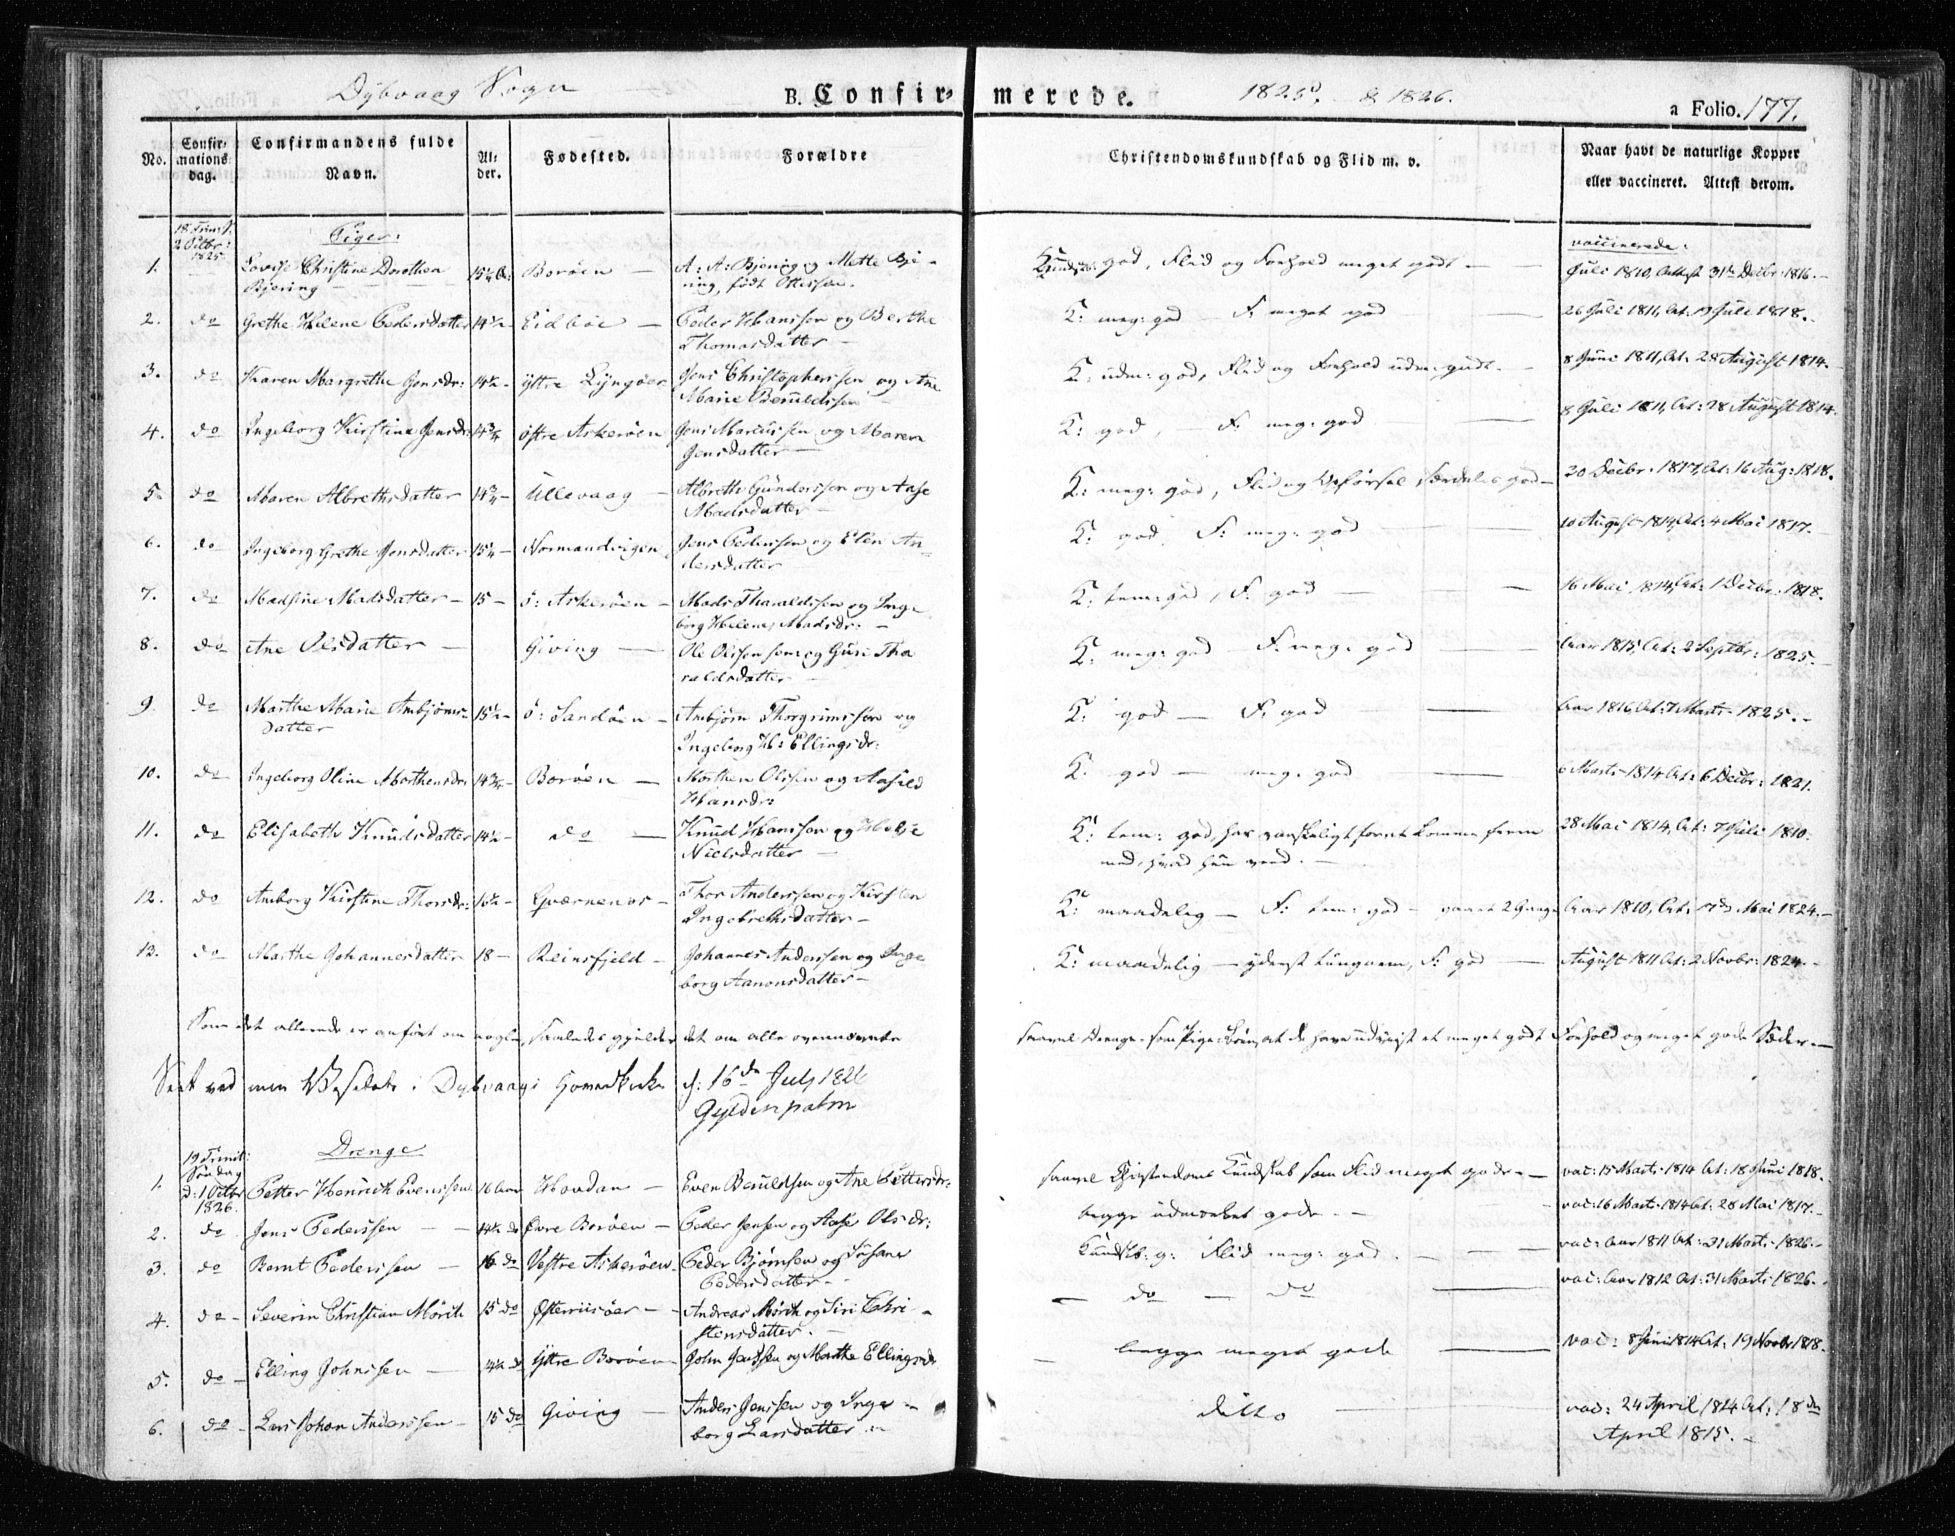 Dybvaag Sogn
B. Confirmerede.
1825 & 1826.
a Folio. 177.
No.
Confirmations dag.
Confirmandens fulde Navn.
Alder.
Fødested.
Forældre
Christendomskundskab og Flid m. v.
Naar havt de naturlige Kopper eller vaccineret. Attest derom.
18 Trinit.
2 Octbr: 1825
Piger:
vaccinerede:
1. Lovise Christine Dorothea Bjering 15¼ A: Borøen A: A: Bjering og Mette Bjering, født Ottesen. Kundsk: god, Flid og Forhold meget godt Juli 1810, Attest 31te Decbr: 1816.
2. do Grethe Helene Pedersdatter 14½ Eidbøe Peder Hanssen og Berthe Thomasdatter K: meg: god F: meget god 26 Juli 1811, At: 19 Juli 1818.
3. do Karen Margrethe Jensdr: 14½ Yttre Lyngøer Jens Christophersen og Ane Marie Beruldsen K: udm: god, Flid og Forhold udm: godt. 8 Juni 1811, At: 28 August 1814.
4. do Ingeborg Kirstine Jensdr: 14¾ Østre Askerøen Jens Marcussen og Maren Jensdatter K: god, F: meg: god 8 Juli 1811, At: 28 August 1814.
5. do Maren Albrethsdatter 14¾ Ullevaag Albreth Gundersen og Aase Madsdatter K: meg: god, Flid og Opførsel særdeles god 30 Decbr. 1817, At: 16 Aug: 1818.
6. do Ingeborg Grethe Jensdatter 15¼ Normandvigen Jens Pedersen og Elen Andersdatter K: god, F: meg: god 10 August 1814, At: 4 Mai 1817.
7. do Madsine Madsdatter 15 Ö: Askerøen Mads Tharaldssen og Ingeborg Helene Madsdr: K: tem: god, F: god 16 Mai 1814, At: 1 Decbr. 1818.
8. do Ane Olsdatter Giving Ole Olssen og Guri Tharaldsdatter K: meg: god F: meg: god Aar 1815, At: 2 Septbr: 1825.
9. do Marthe Marie Ambjørnsdatter 15½ Ö: Sandøen Ambjørn Thorgrimssen og Ingeborg H: Ellingsdr: K: god F: god Aar 1816, At: 7 Marts 1825.
10. do Ingeborg Oline Morthensdr: 14¾ Borøen Morthen Olssen og Aasild Hansdr: K: god meg: god 6 Marts 1814 At: 6 Decbr: 1821.
11. do Elisabeth Knudsdatter 14½ do Knud Hanssen og Helje Nielsdatter K: tem: god, har vanskeligt for at komme frem med, hvad hun veed. 28 Mai 1814, At: 7 Juli 1810.
12. do Amborg Kirstine Thorsdr: 16½ Gværnenes Thor Anderssen og Kirsten Ingebrethsdatter K: maadelig F: tem: god 2 Gange Aar 1810, At: 17de Mai 1824.
13. do Marthe Johannesdatter 18 Reinsfjeld Johannes Anderssen og Ingeborg Aanonsdatter K: maadelig yderst tungnem, F: god August 1811 At: 2 Novbr: 1824.
Som det allerede er anført om nogle, saaledes gjelder det om alle ovennævnte saavel Drenge- som Pige-Børn, at de have udviist et meget godt Forhold og meget gode Sæder.
Seet ved min Visitats i Dybvaags Hovedkirke d: 16de July 1826
Gyldenpalm
19 Trinit: Søndag
d: 1 Octbr 1826.
Drenge
1. Petter Henrich Evenssen 16 Aar Hovdan Even Beruldsen og Ane Pettersdr: saavel Christendoms Kundskab som Flid meget gode vac: 15 Marts 1814 At: 18 Juni 1818.
2. do Jens Pederssen 14½ do Øvre Borøen Peder Jensen og Aase Olsdr: begge udmærket gode vac: 16 Marts 1814 At: 28 Mai 1817.
3. do Bernt Pederssen 16 do Vestre Askerøen Peder Bjørnsen og Susane Pedersdatter Kundsk: g: Flid meg: god. vac: Aar 1811 At: 31 Marts 1826.
4. do Severin Christian Mörch 15 do Østerriisøer Andreas Mörch og Siri Christensdatter. do do vac: Aar 1812 At: 31 Marts 1826.
5. do Elling Johnssen 14½ do Yttre Borøen John Jenssen og Marthe Ellingsdr begge meget gode vac: 8 Juni 1814 At: 19 Novbr 1818.
6. do Lars Johan Anderssen 15 do Giving Anders Jenssen og Ingeborg Larsdatter ditto vac: 24 April 1814 At: 18de April 1815.